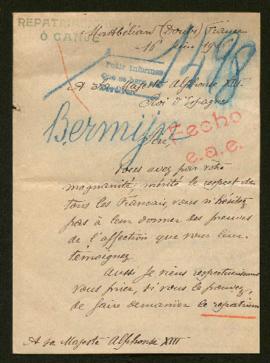 REPATRIA
O CANJE
Montbéliard (Doubs) France
1498
Pedir informes
A Sa Majesté Alphonse XIII
Roi d'Espagne
Bermijn
Hecho
e.a.e.
Sire,
Vous avez par votre
magnanimité, mérité le respect de
tous les Français, vous n'hésitez
pas à leur donner des preuves
de l'affection que vous leur
témoignez.
Aussi je viens respectueusement
vous prier, si vous le pouvez,
de faire demander le rapatriem
A Sa Majesté Alphonse XIII